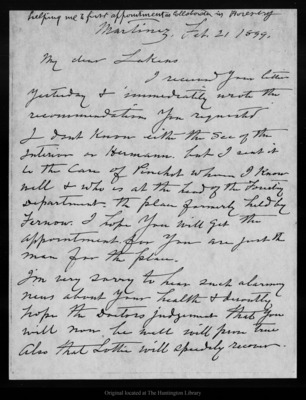 helping me to first appointment as Collaborator in Forestry
Martinez, Feb. 21 1899.
My dear Lukens
I received your letter
yesterday & immediately wrote the
recommendation you requested
I dont know either the Sec of the
Interior or Hermann. but I sent it
to the care of Pinchot whom I know
well & who is at the head of the Forestry
Department. the place formerly held by
Fernow. I hope you will get the
appointment for you are just the
man for the place.
I'm very sorry to hear such alarming
news about your health & devoutly
hope the doctors judgement that you
will now be well will prove true
Also that Lottie will speedily recover.
Original located at The Huntington Library